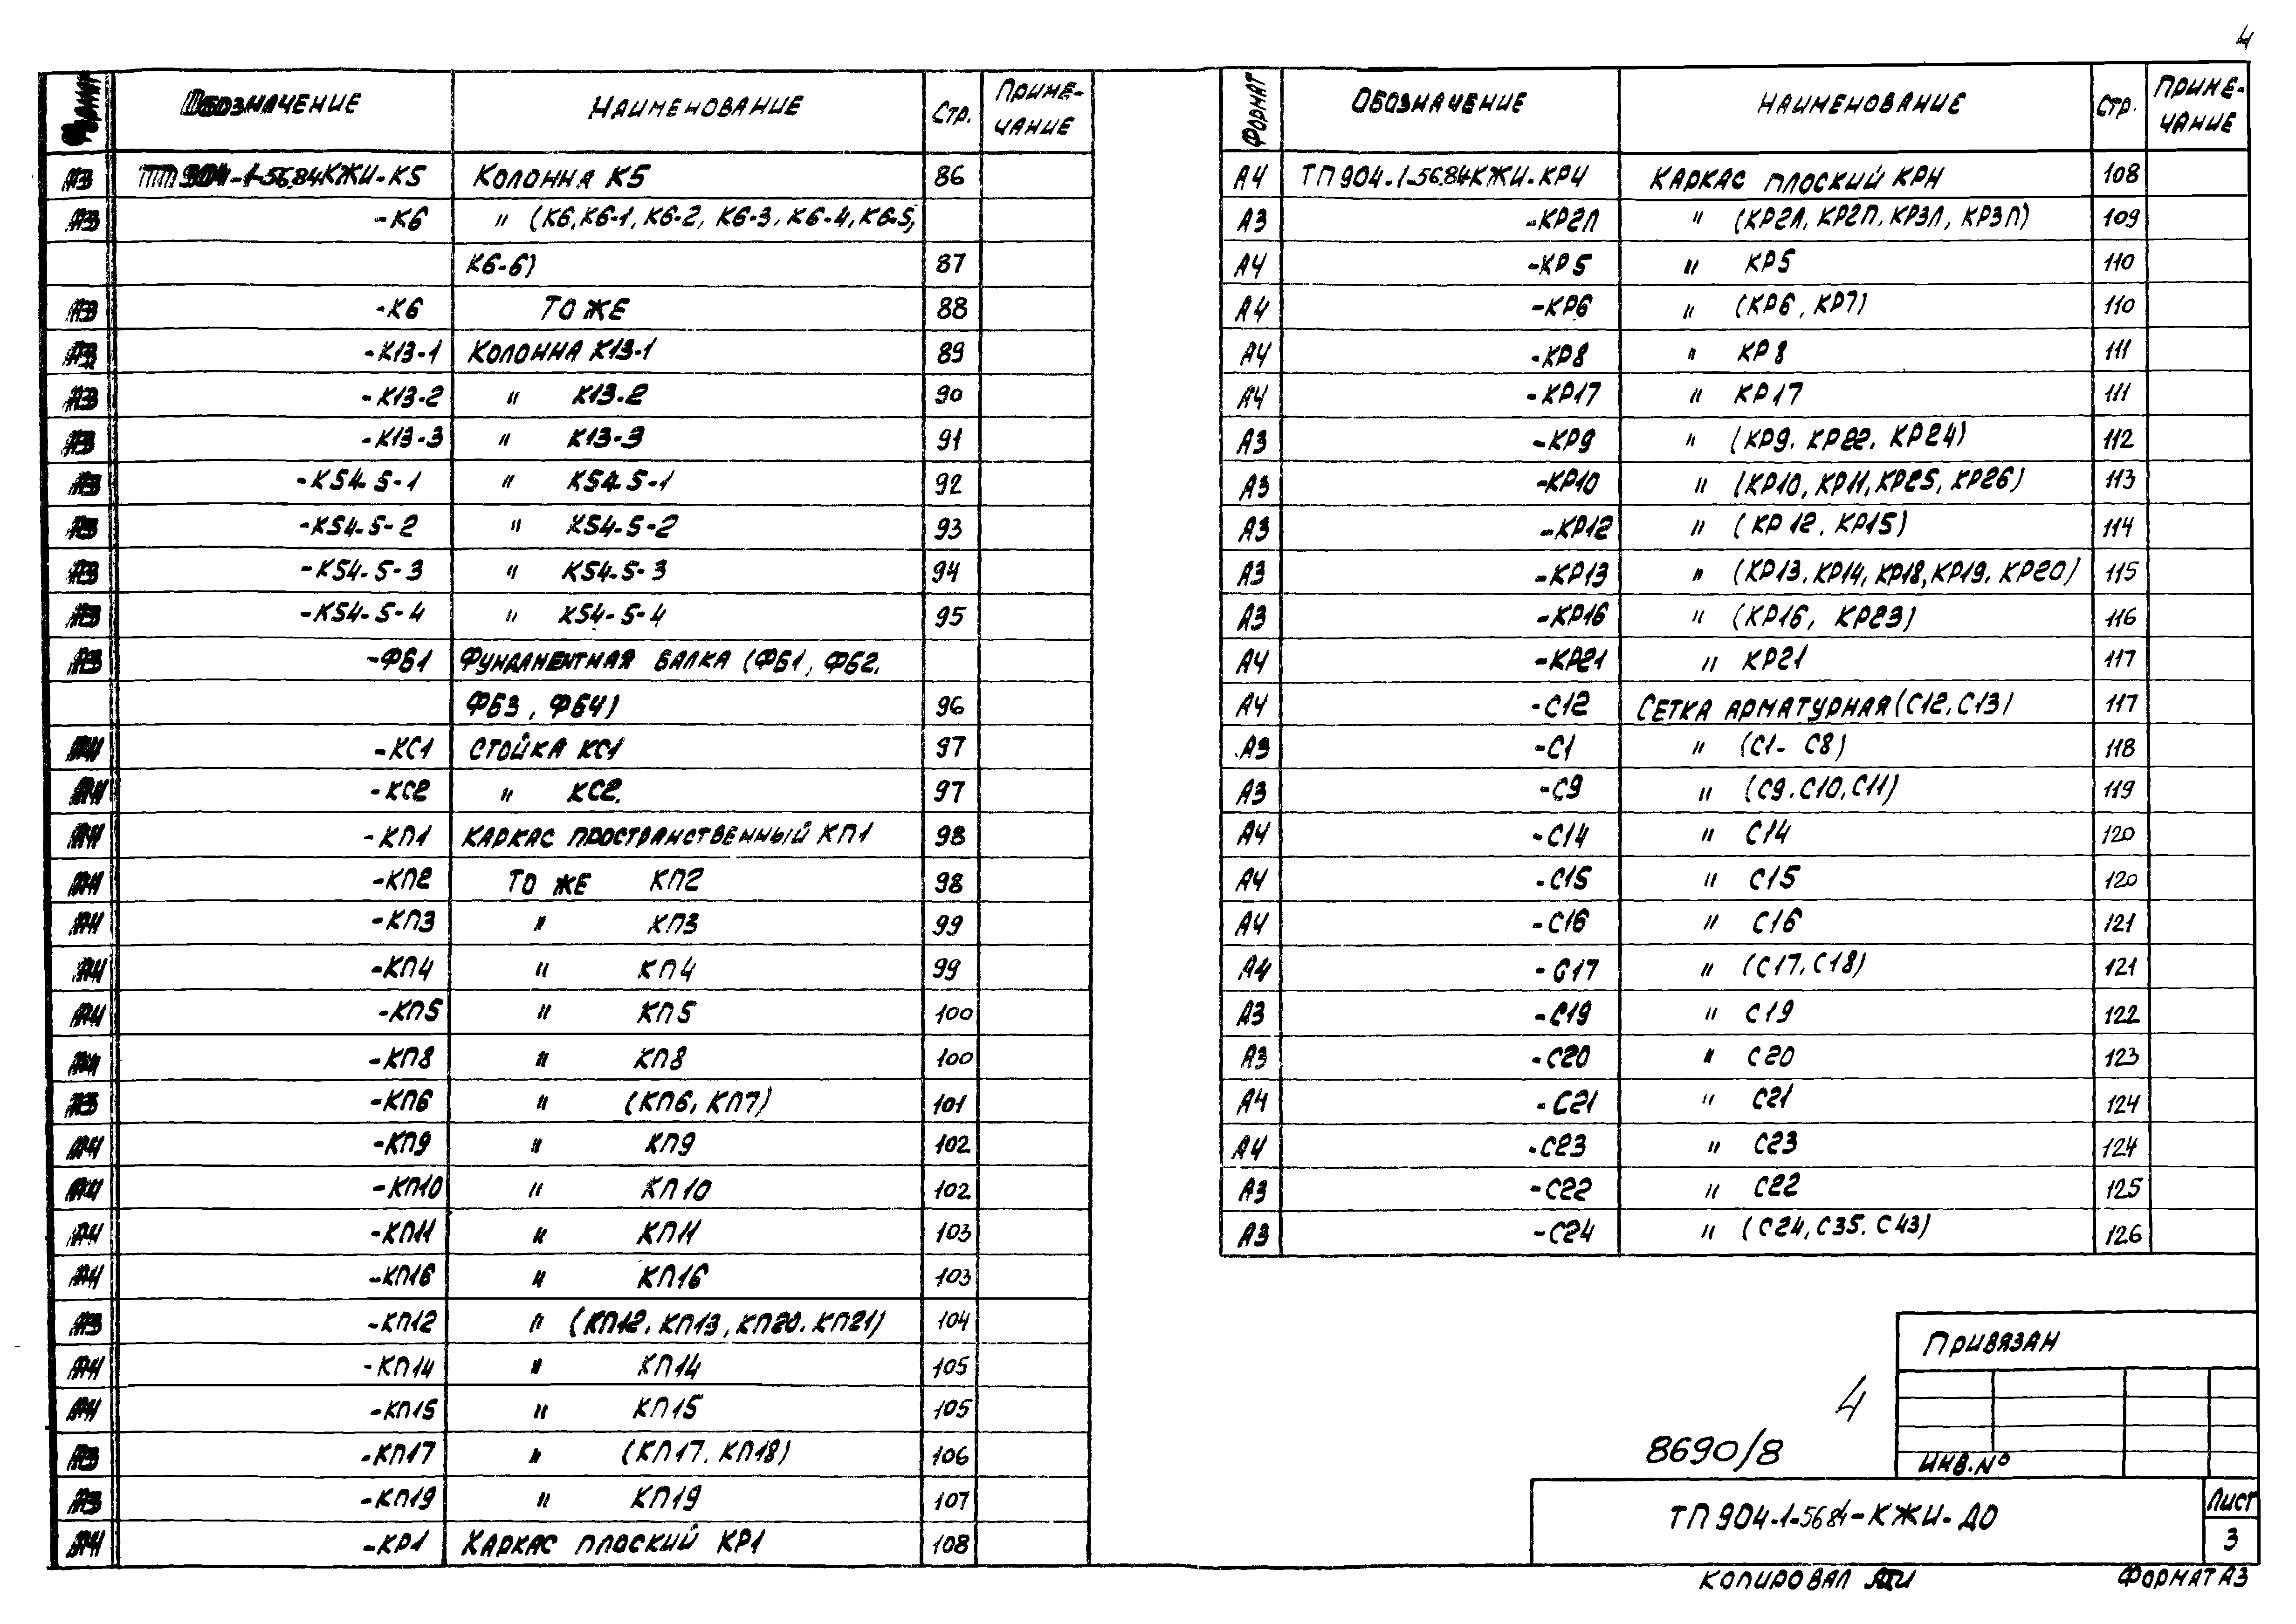 4
Формат Обозначение Наименование Стр. Приме-чание
А3 ТП 904-1-56.84 КЖИ-К5 Колонна К5 86
А3 -К6 " (К6, К6-1, К6-2, К6-3, К6-4, К6-5,
К6-6) 87
А3 -К6 То же 88
А3 -К13-1 Колонна К13-1 89
А3 -К13-2 " К13-2 90
А3 -К13-3 " К13-3 91
А3 -К54-5-1 " К54-5-1 92
А3 -К54-5-2 " К54-5-2 93
А3 -К54-5-3 " К54-5-3 94
А3 -К54-5-4 " К54-5-4 95
А3 -ФБ1 Фундаментная балка (ФБ1, ФБ2,
ФБ3, ФБ4) 96
А4 -КС1 Стойка КС1 97
А4 -КС2 " КС2. 97
А4 -КП1 Каркас пространственный КП1 98
А4 -КП2 То же КП2 98
А4 -КП3 " КП3 99
А4 -КП4 " КП4 99
А4 -КП5 " КП5 100
А4 -КП8 " КП8 100
А3 -КП6 " (КП6, КП7) 101
А4 -КП9 " КП9 102
А4 -КП10 " КП10 102
А4 -КП11 " КП11 103
А4 -КП16 " КП16 103
А3 -КП12 " (КП12, КП13, КП20, КП21) 104
А4 -КП14 " КП14 105
А4 -КП15 " КП15 105
А3 -КП17 " (КП17, КП18) 106
А3 -КП19 " КП19 107
А4 -КР1 Каркас плоский КР1 108
Формат Обозначение Наименование Стр. Приме-чание
А4 ТП 904-1-56.84 КЖИ-КР4 Каркас плоский КР4 108
А3 -КР2Л " (КР2Л, КР2П, КР3Л, КР3П) 109
А4 -КР5 " КР5 110
А4 -КР6 " (КР6, КР7) 110
А4 -КР8 " КР8 111
А4 -КР17 " КР17 111
А3 -КР9 " (КР9, КР22, КР24) 112
А3 -КР10 " (КР10, КР11, КР25, КР26) 113
А3 -КР12 " (КР12, КР15) 114
А3 -КР13 " (КР13, КР14, КР18, КР19, КР20) 115
А3 -КР16 " (КР16, КР23) 116
А4 -КР21 " КР21 117
А4 -С12 Сетка арматурная (С12, С13) 117
А3 -С1 " (С1- С8) 118
А3 -С9 " (С9, С10, С11) 119
А4 -С14 " С14 120
А4 -С15 " С15 120
А4 -С16 " С16 121
А4 -С17 " (С17, С18) 121
А3 -С19 " С19 122
А3 -С20 " С20 123
А4 -С21 " С21 124
А4 -С23 " С23 124
А3 -С22 " С22 125
А3 -С24 " (С24, С35, С43) 126
Привязан
Инв. №
4
8690/8
ТП 904-1-56.84-КЖИ-ДО
Лист
3
Копировал
Формат А3